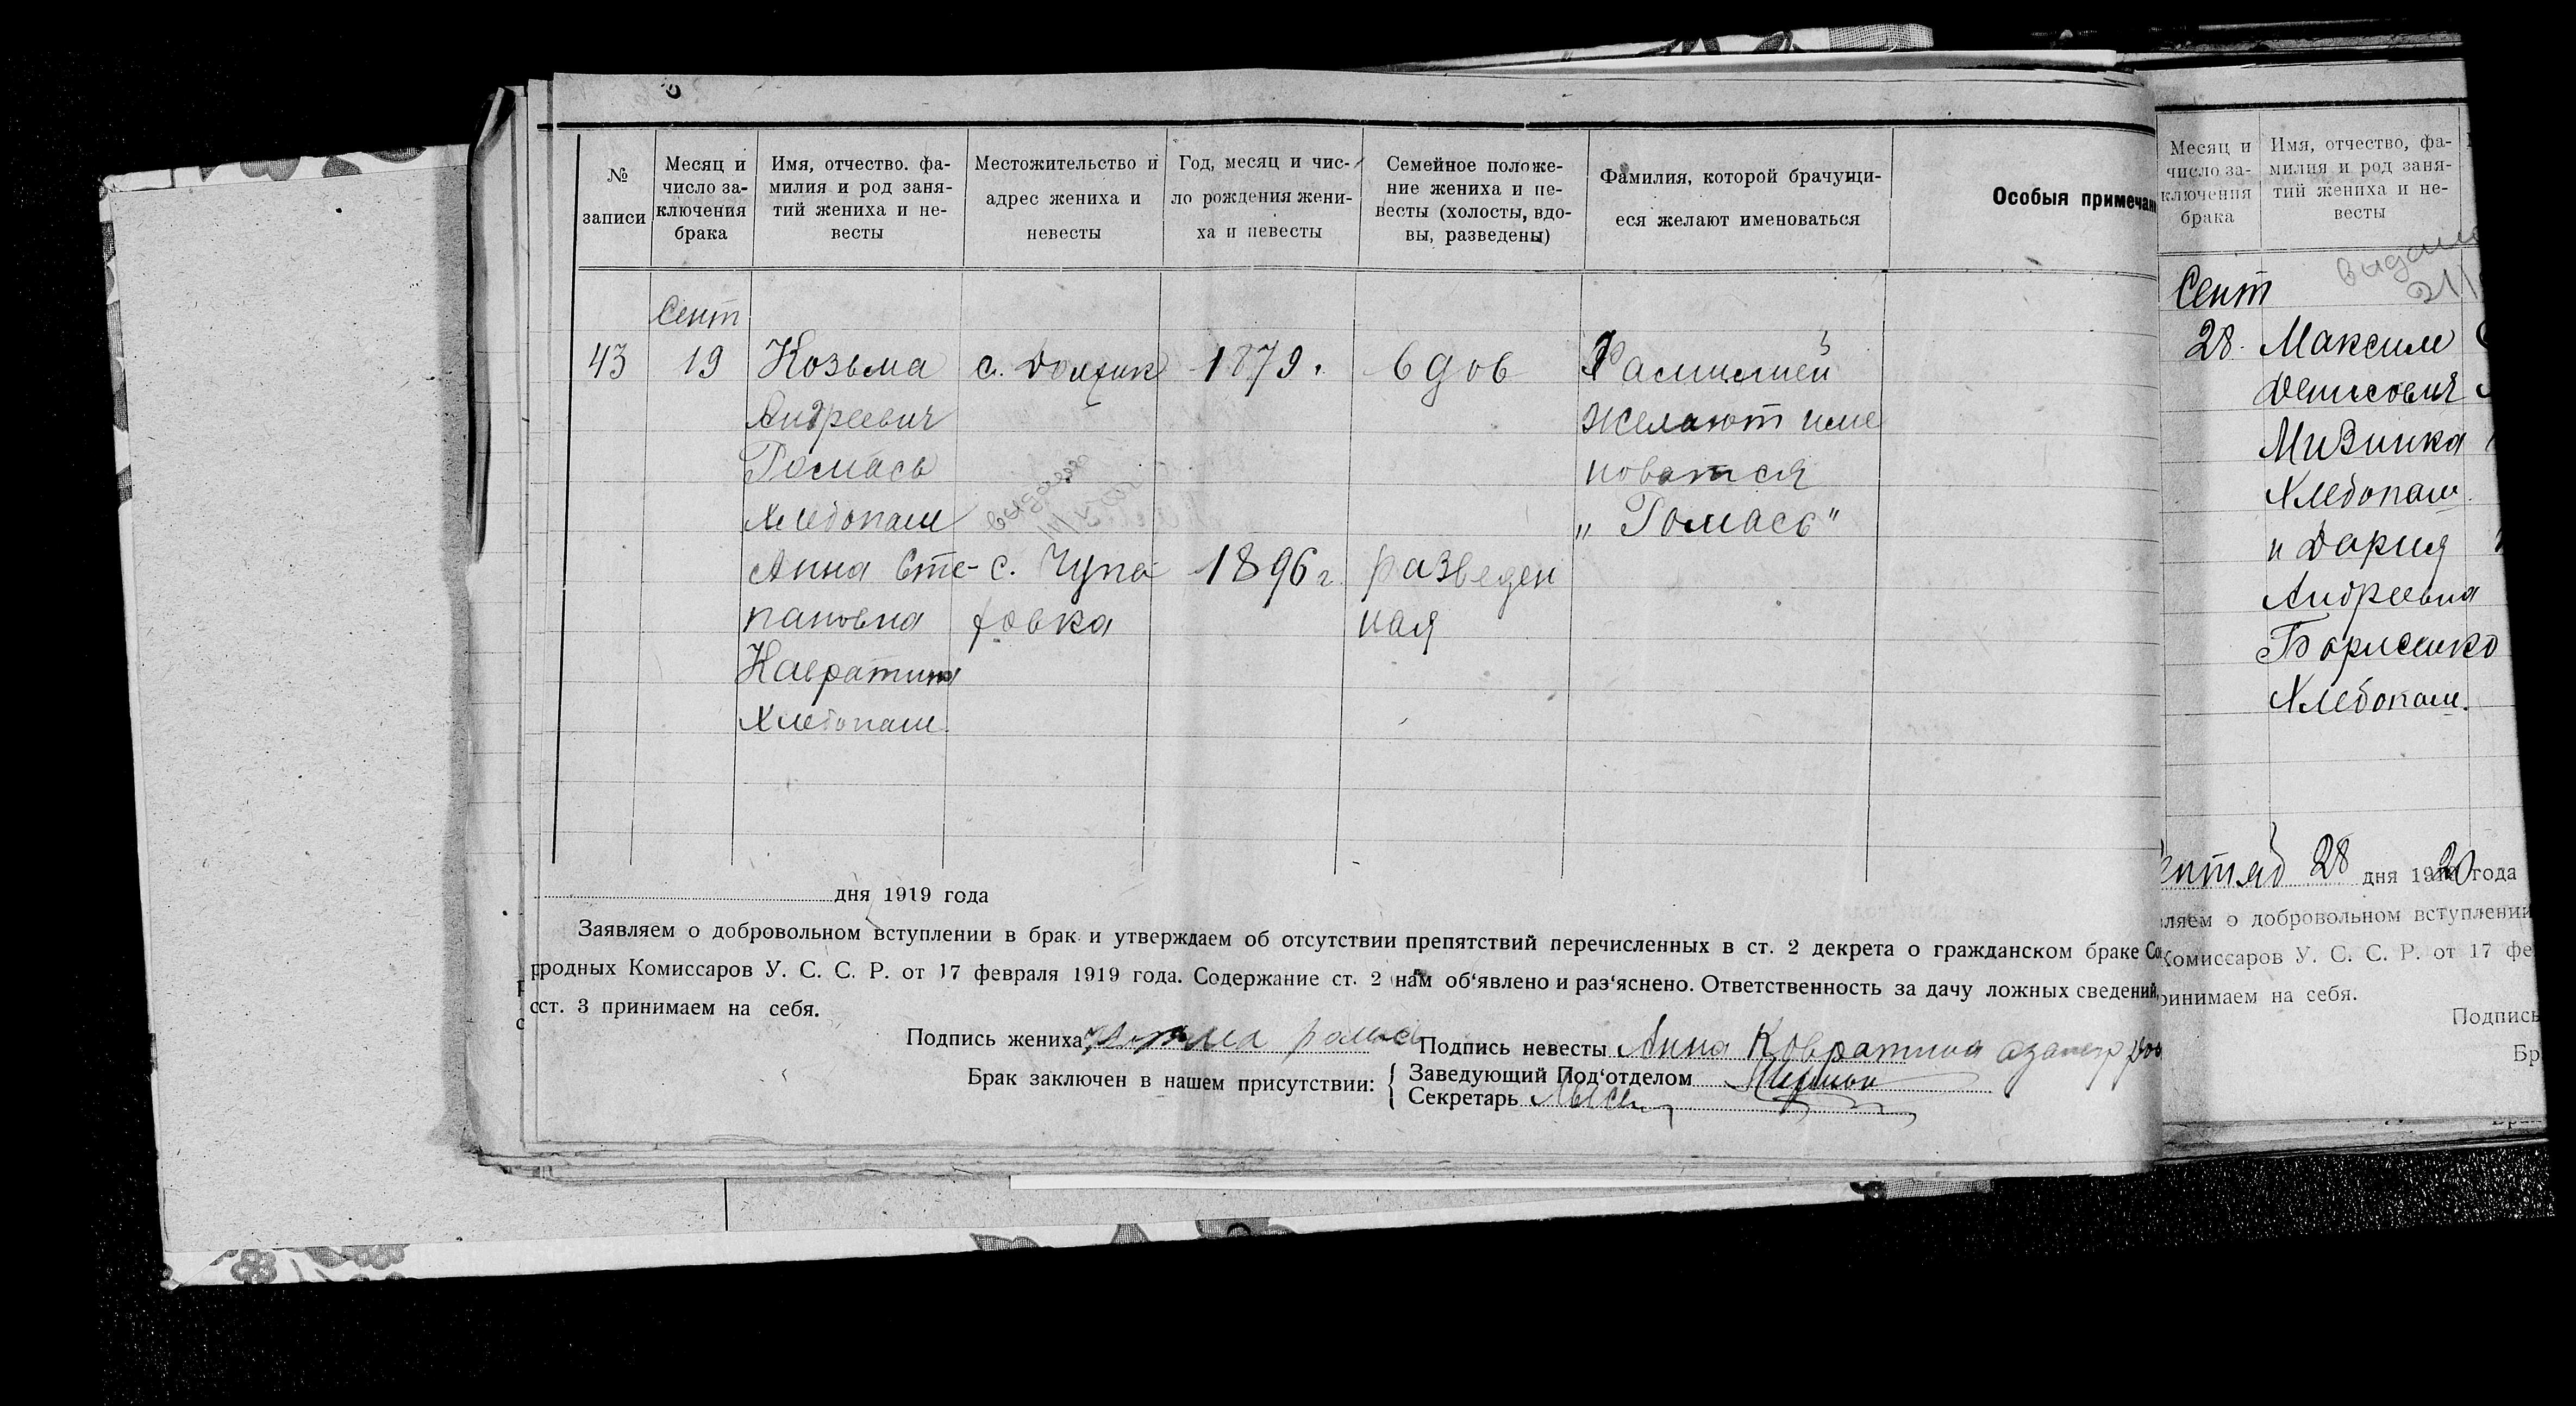 №
записи
Месяц и
число за-
ключения
брака
Имя, отчество. фа-
милия и род заня-
тий жениха и не-
весты
Местожительство и
адрес жениха и
невесты
Год, месяц и чис-
ло рождения жени-
ха и невесты
Семейное положе-
ние жениха и не-
весты (холосты, вдо-
вы, разведены)
Фамилия, которой брачущи-
еся желают именоваться
Особыя примечан
Сент
43
19
Козьма
Андреевич
Ромась
Хлебопаш
с. Должик
1879.
вдов
Фамилией
желают име
новатся
„Ромась"
Анна Сте-
пановна
Навратина
Хлебопаш.
с. Чупа-
ховка
1896 г.
разведен
ная
дня 1919 года
Заявляем о добровольном вступлении в брак и утверждаем об отсутствии препятствий перечисленных в ст. 2 декрета о гражданском браке Со
родных Комиссаров У. С. С. Р. от 17 февраля 1919 года. Содержание ст. 2 нам об‘явлено и раз‘яснено. Ответственность за дачу ложных сведений,
ст. 3 принимаем на себя.
Подпись жениха Козма ромась
Подпись невесты Анна Ковратина
Брак заключен в нашем присутствии:
Заведующий Под‘отделом
Секретарь
Месяц и
число за-
ключения
брака
Имя, отчество, фа-
милия и род заня-
тий жениха и не-
весты
Сент
28.
Максим
Денисович
Мизинка
Хлебопаш.
и Дария
Андреевна
Борисенко
Хлебопаш.
28 дня 1920 года
ляем о добровольном вступлении
Комиссаров У. С. С. Р. от 17 фе
ринимаем на себя.
Подпись
Бр